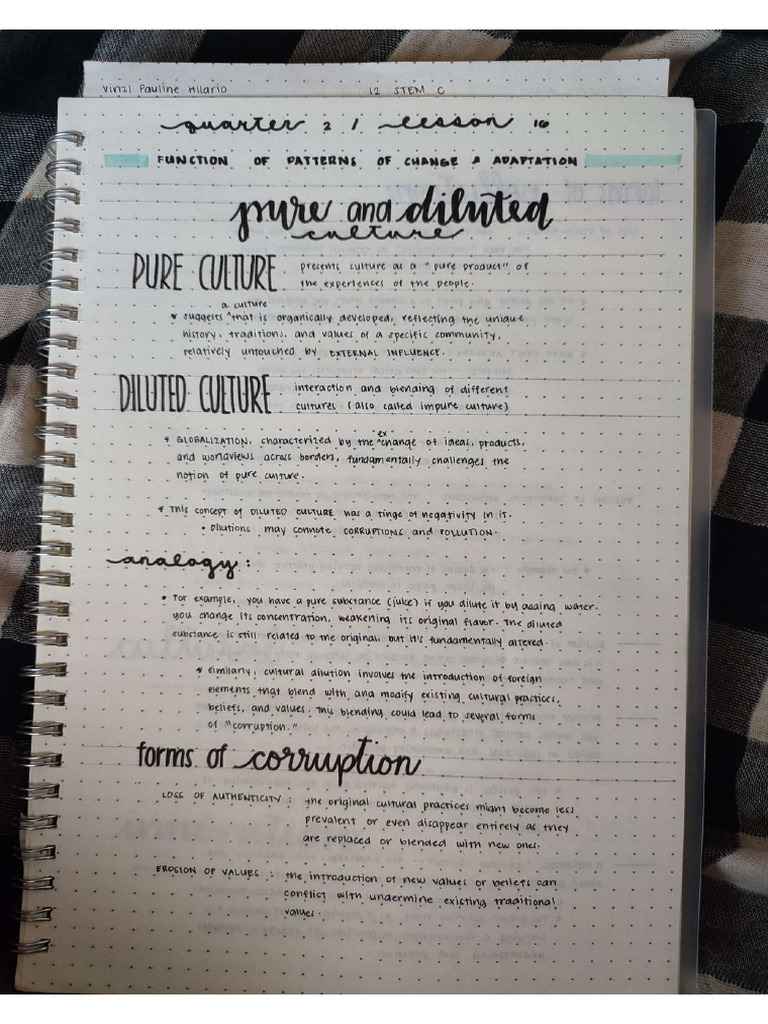 Vinzl Pauline Hilario 12 STEM C
quarter 2 / lesson 16
FUNCTION OF PATTERNS OF CHANGE & ADAPTATION
pure and diluted
culture
PURE CULTURE presents culture as a "pure product" of
the experiences of the people.
a culture
* suggests ^that is organically developed, reflecting the unique
history, traditions, and values of a specific community,
relatively untouched by EXTERNAL INFLUENCE.
DILUTED CULTURE interaction and blending of different
cultures (also called impure culture)
ex
* GLOBALIZATION, characterized by the ^change of ideas, products,
and worldviews across borders, fundamentally challenges the
notion of pure culture.
* This concept of DILUTED CULTURE has a tinge of negativity in it.
• Dilutions may connote CORRUPTIONS and POLLUTION.
analogy:
• For example, you have a pure substance (juice) if you dilute it by adding water.
you change its concentration, weakening its original flavor. The diluted
substance is still related to the original, but it's fundamentally altered.
* similarly, cultural dilution involves the introduction of foreign
elements that blend with and modify existing cultural practices,
beliefs, and values. This blending could lead to several forms
of "corruption."
forms of corruption
LOSS OF AUTHENTICITY : the original cultural practices might become less
prevalent or even disappear entirely as they
are replaced or blended with new ones.
EROSION OF VALUES : the introduction of new values or beliefs can
conflict with undermine existing traditional
values.